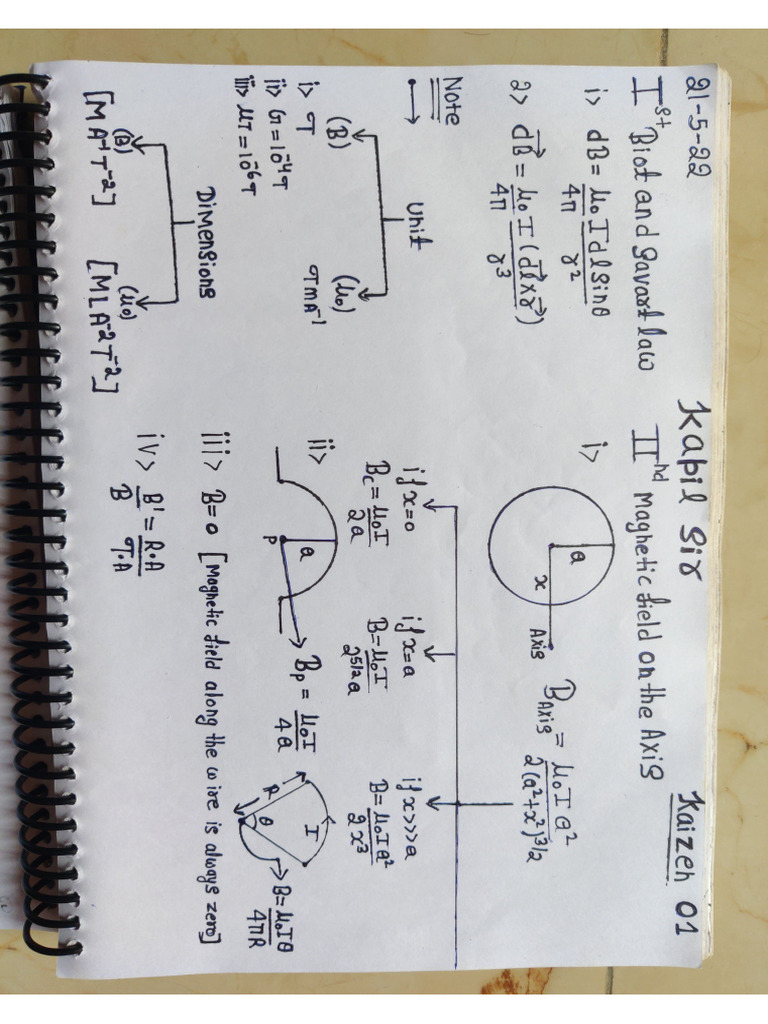 21-5-22 Kapil Sir Kaizen 01
Ist Biot and Savart law
i> dB = μ₀ I dl sinθ / 4π r²
2> dB⃗ = μ₀ I (dl⃗ × r⃗) / 4π r³
Note
•→
Unit
(B) (μ₀)
i> T TmA⁻¹
ii> G = 10⁻⁴T
iii> μT = 10⁻⁶T
Dimensions
(B) (μ₀)
[MA⁻¹T⁻²] [MLA⁻²T⁻²]
IInd Magnetic field on the Axis
i> a x Axis B Axis = μ₀ I a² / 2(a²+x²)3/2
if x=0 if x=a if x>>>a
Bc = μ₀I / 2a B = μ₀I / 2^5/2 a B = μ₀Ia² / 2x³
ii> a P Bp = μ₀I / 4a R θ I B = μ₀Iθ / 4πR
iii> B=0 [Magnetic field along the wire is always zero]
iv> B' / B = R·A / T·A